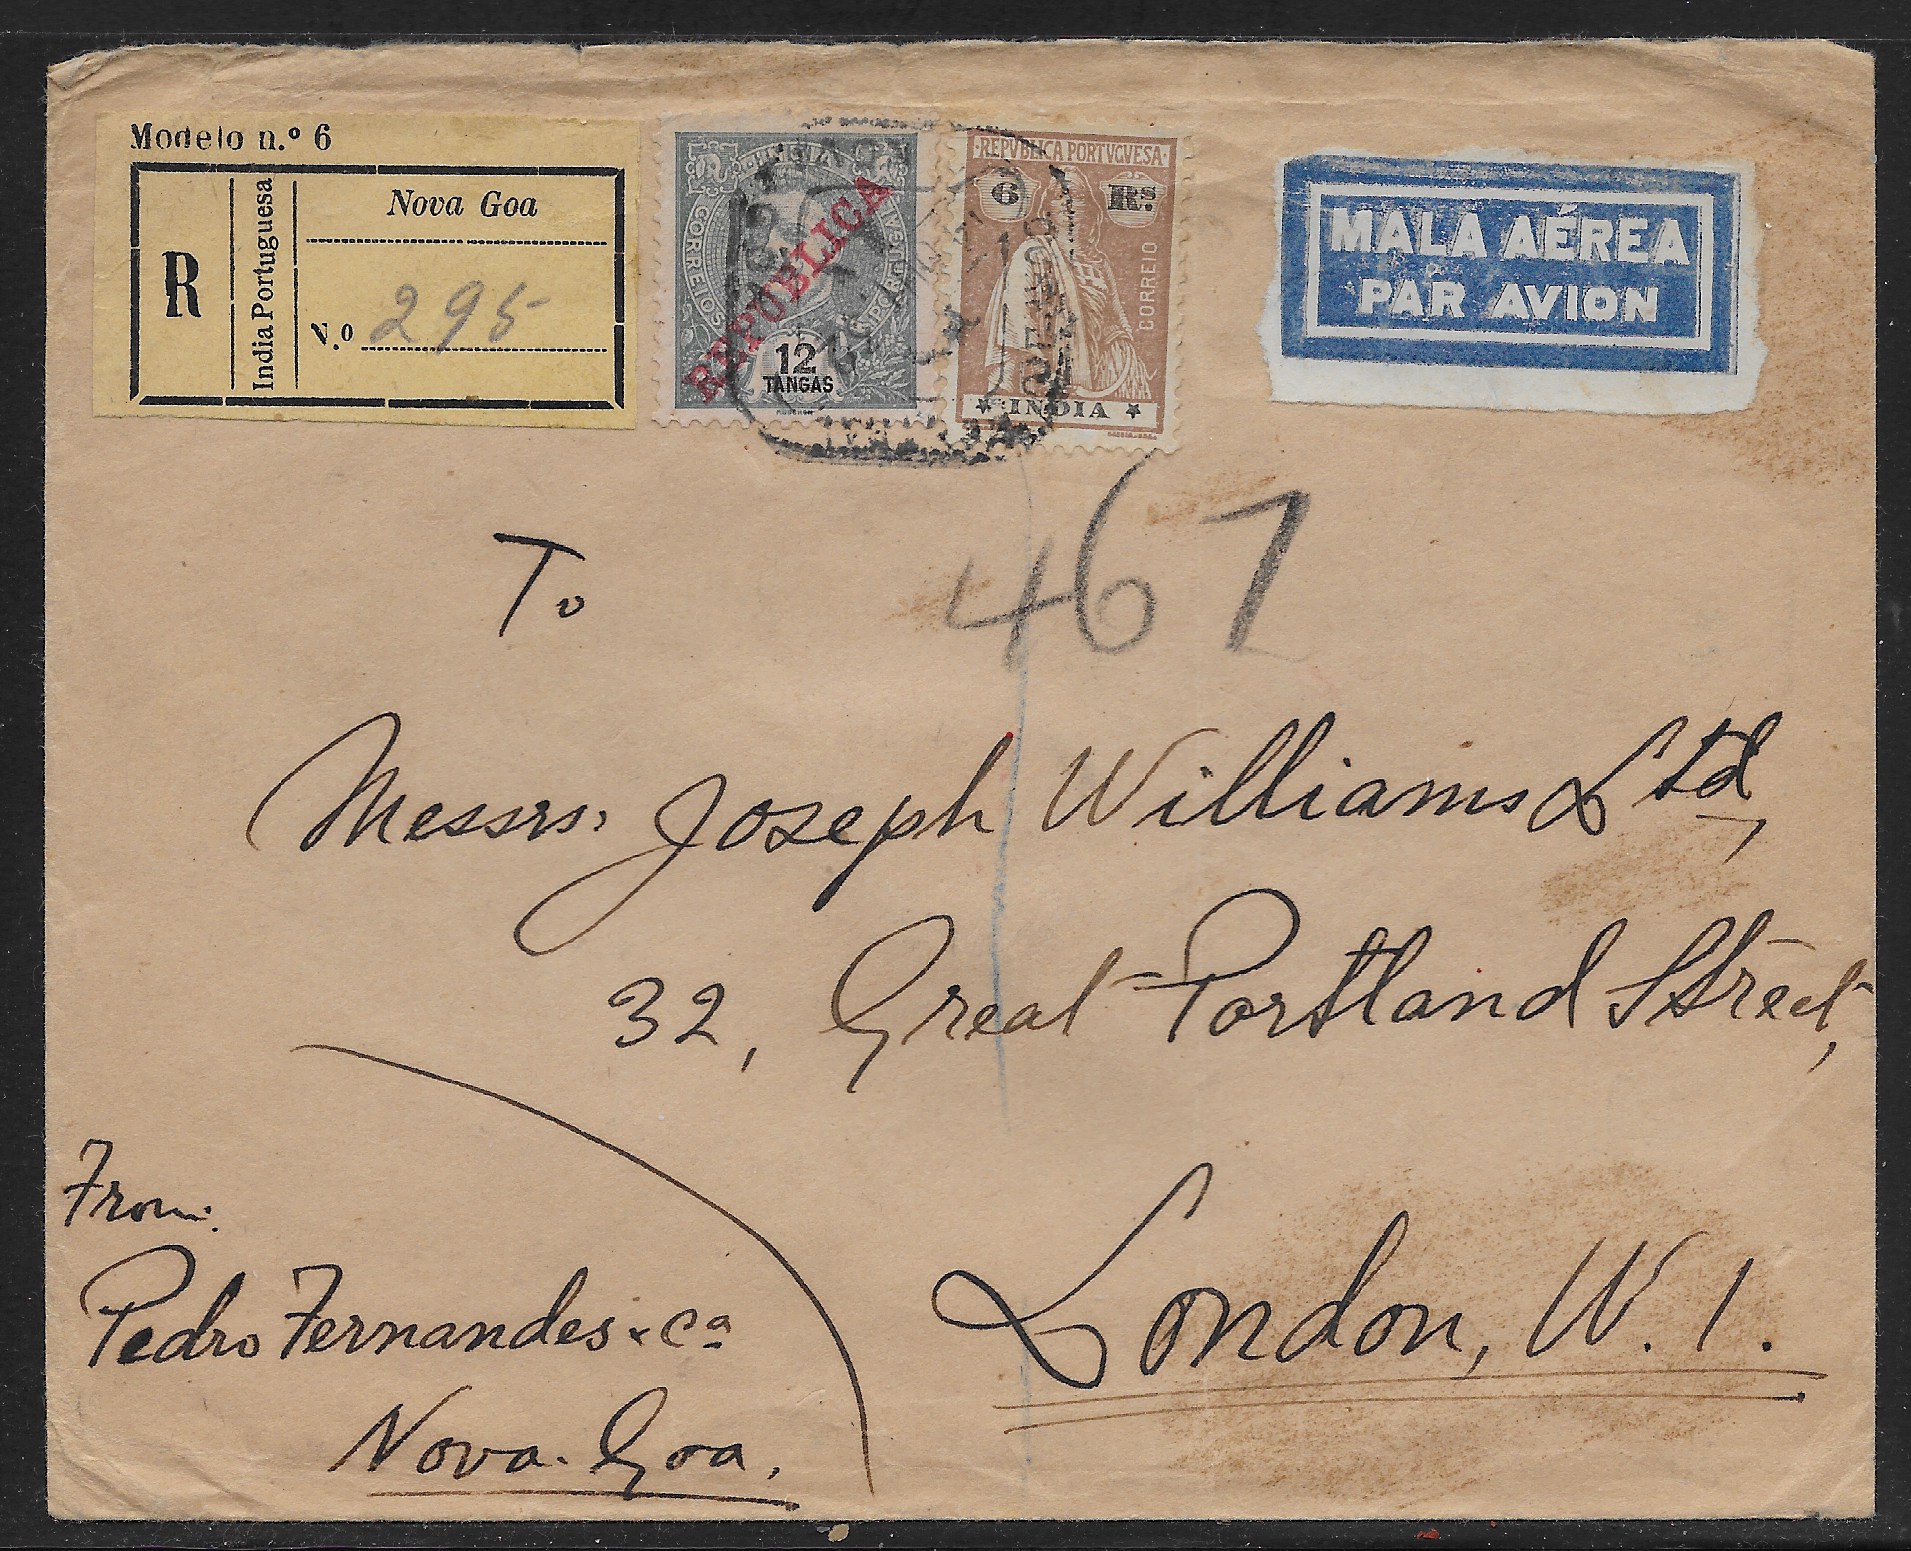 Modelo n.º 6
R
India Portuguesa
Nova Goa
N.º 295
INDIA
CORREIOS
REPUBLICA
12
TANGAS
REPVBLICA PORTVGVESA
6 Rs
CORREIO
INDIA
MALA AÉREA
PAR AVION
467
To
Messrs. Joseph Williams Ltd,
32, Great Portland Street,
London, W. 1.
From:
Pedro Fernandes & Ca
Nova-Goa.